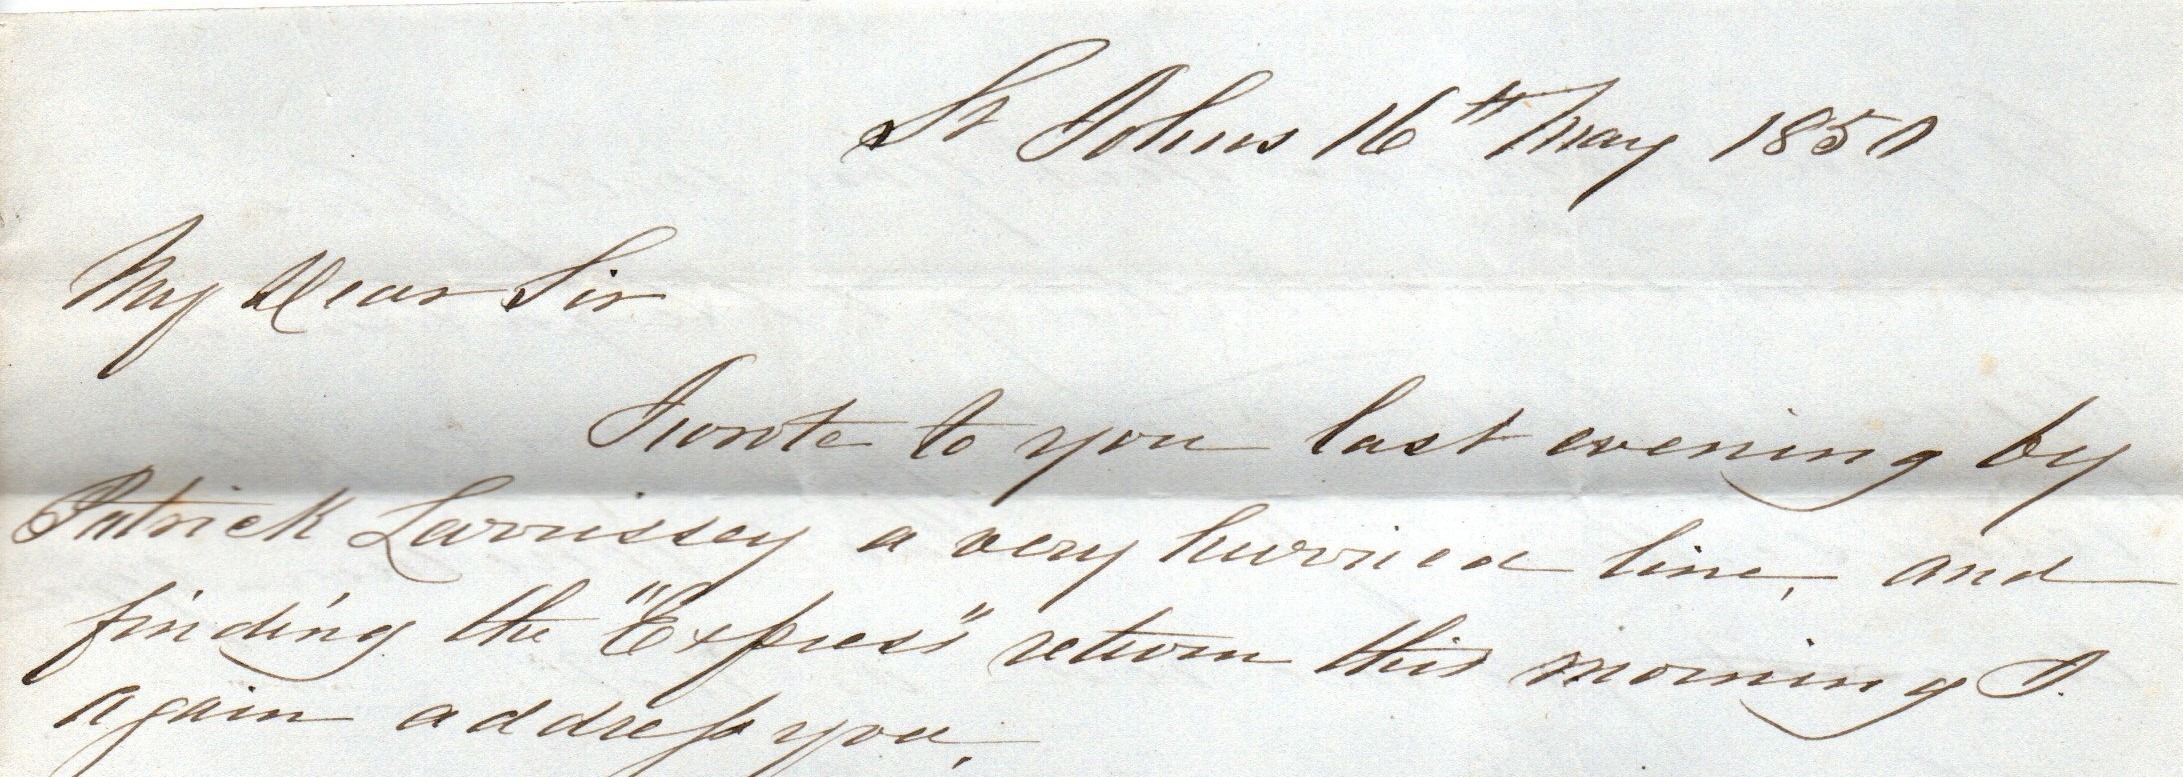 St Johns 16th May 1851
My Dear Sir
I wrote to you last evening by
Patrick Larrissey a very hurried line, and
finding the "Express" return this morning I
again address you,